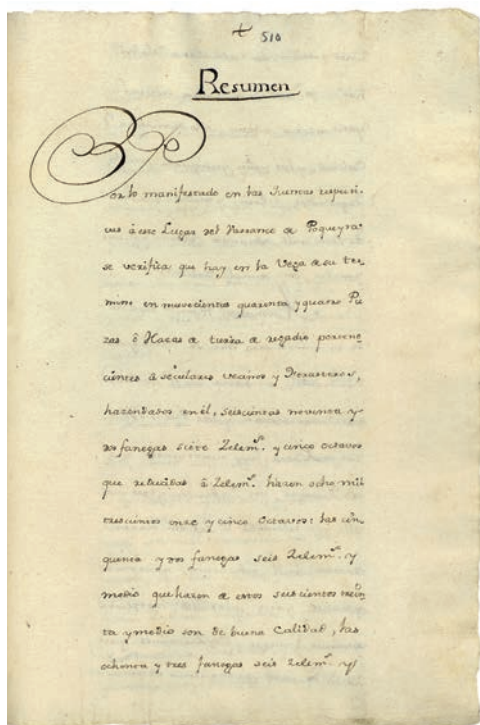 + 510
Resumen
Por lo manifestado en las
à este Lugar del Barranco de Poqueyra
se verifica que hay en la Vega de su ter-
mino en nuevecientas quarenta y quatro Pie-
zas ô Hazas de tierra de regadio pertene-
cientes â seculares vecinos y Forasteros,
hacendados en él, seiscientas noventa y
dos fanegas siete Zelem.s y cinco octavos
que reducidas â Zelem.s hazen ocho mil
trescientos onze y cinco Octavos: las cin-
quenta y dos fanegas seis Zelem.s y
medio que hazen de estos seiscientos trein-
ta y medio son de buena Calidad, las
ochenta y tres fanegas seis Zelem.s y